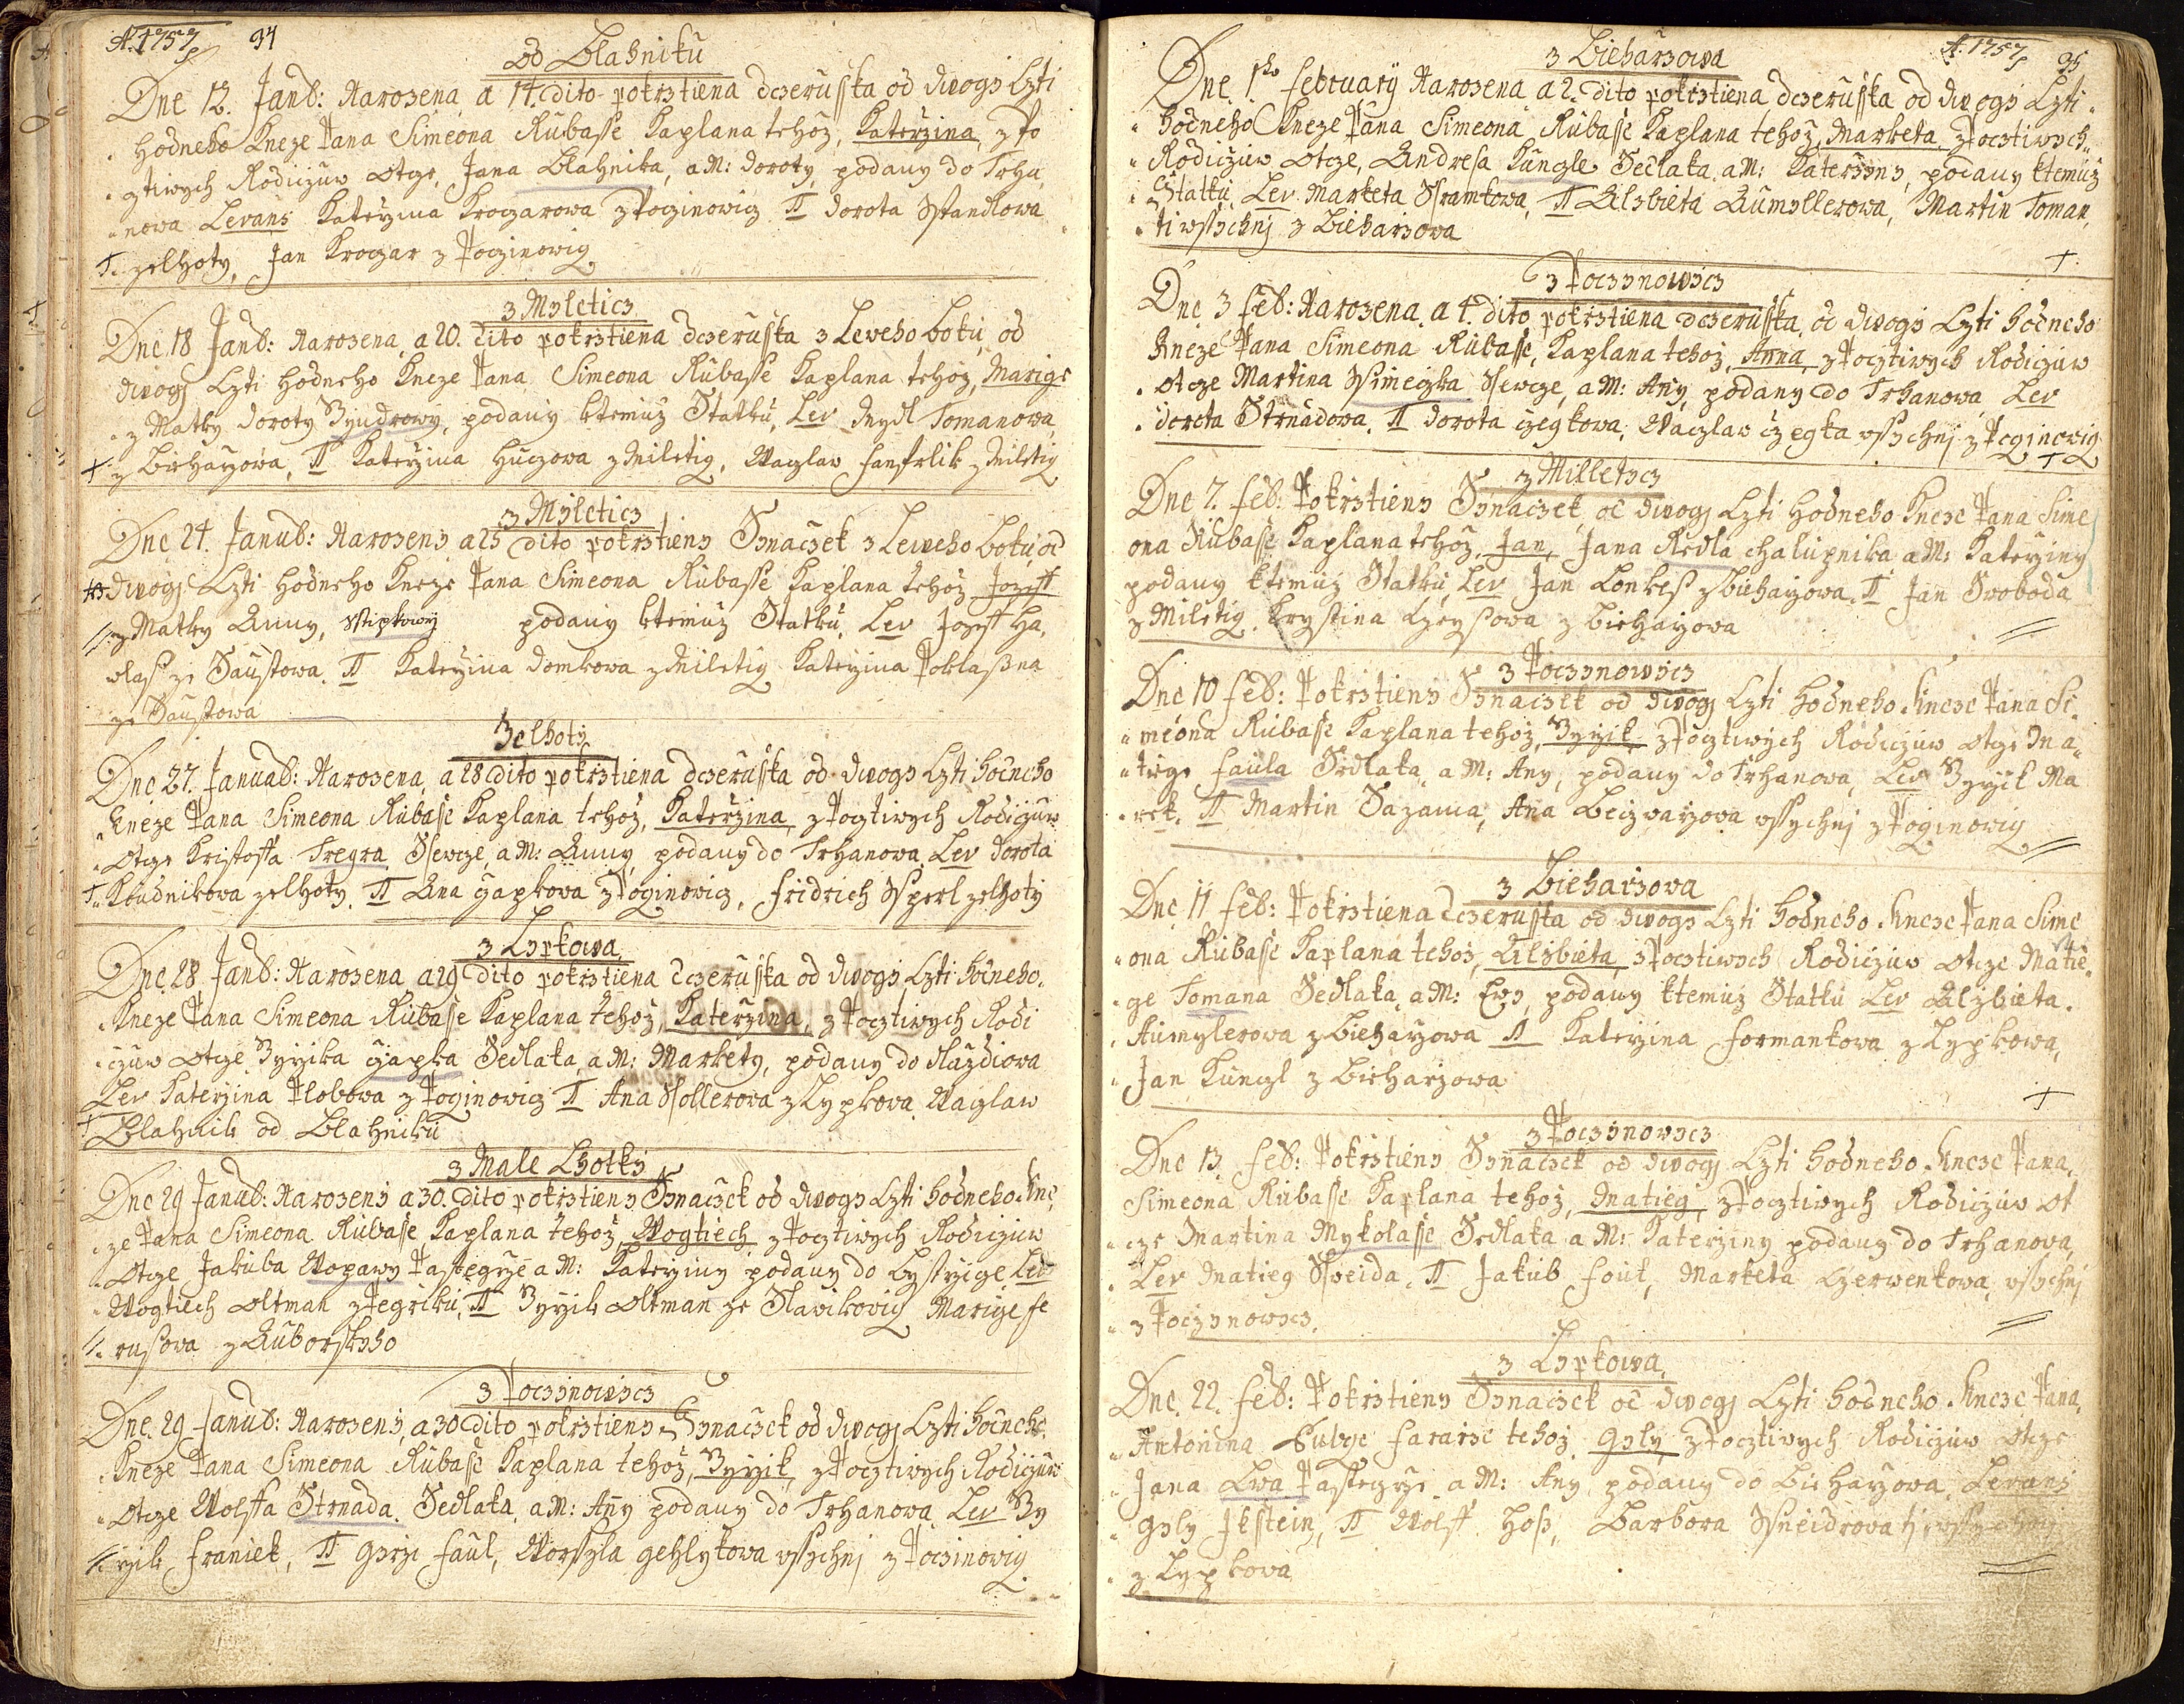 A. 1757 94
od Blahniku
Dne 13. Janb: Narozena a 14. dito pokrztiena dczeruska od dwogi Czti
hodneho Kneze Pana Simeona Rubasse Kaplana tehoz, Katerzina, z Po
cztiwych Rodiczuw Otcze, Jana Blahnika, a M: Doroty, podany do Trha,
nowa Levans Katerzina Kroczarowa z Poczinowicz II Dorota Standlowa
zelhoty, Jan Kroczar z Poczinowicz
z Myleticz
Dne 18 Janb: Narozena, a 20. dito pokrztiena dczeruska z Leweho boku, od
dwogi Czti hodneho Kneze Pana Simeona Rubasse Kaplana tehoz, Marige
z Matky Doroty podany ktemuz Statku, Lev Tomanowa
z Bieharzowa, II Katerzina Huczowa z Miletiz, Waczlaw z Miletiz
z Myleticz
Dne 24. Janub: Narozeny a 25 dito pokrztieny Synaczek z Leweho boku, od
dwogi Czti hodneho Kneze Pana Simeona Rubasse Kaplana tehoz Jozeff
z Matky Anny, podany ktemuz Statku, Lev Jozeff Ha,
ze Saustowa. II Katerzina Domkowa z Miletiz Katerzina
ze Saustowa
Zelhoty
Dne 27. Januab: Narozena, a 28 dito pokrztiena dczeruska od dwogi Czti hodneho
Kneze Pana Simeona Rubasse Kaplana tehoz, Katerzina, z Pocztiwych Rodiczuw
Otcze Kristoffa Tregra Sewcze, a M: Anny podany do Trhanowa, Lev Dorota
zelhoty. II Ana Czapkowa z Poczinowicz, Fridrich Sperl zelhoty
z Lypkowa
Dne 28 Janb: Narozena a 29 dito pokrztiena dczeruska od dwogi Czti hodneho
Kneze Pana Simeona Rubasse Kaplana tehoz, Katerzina, z Pocztiwych Rodi
czuw Otcze Gyrzika Czapka Sedlaka, a M: Markety, podany do
Lev Katerzina z Poczinowicz II Ana z Lypkowa, Waczlaw
Blahnik od Blahniku
z Male Lhotky
Dne 29 Janub: Narozeny a 30. dito pokrztieny Synaczek od dwogi Czti hodneho Kne
ze Pana Simeona Rubasse Kaplana tehoz, Wogtiech z Pocztiwych Rodiczuw
Otcze Jakuba Woparzy a M: Katerziny podany do Bystrzige Lev
Wogtiech Oltman II Gyrzik Oltman ze Slawikowiz Marige Fe
z Auborskyho
z Poczynowycz
Dne. 29 Janub: Narozeny, a 30 dito pokrztieny Synaczek od dwogi Czti hodneho
Kneze Pana Simeona Rubasse Kaplana tehoz, Gyrzik z Pocztiwych Rodiczuw
Otcze Wolffa Strnada. Sedlaka, a M: Any podany do Trhanowa, Lev Gy
rzik Franiek, II Girzi Faul, Worssyla wssychni z Poczinowiz

A. 1757 95
z Bieharzowa
Dne 1ho February Narozena a 2. dito pokrztiena dczeruska od dwogi Czti
hodneho Kneze Pana Simeona Rubasse Kaplana tehoz, Marketa z Pocztiwych
Rodiczuw Otcze, Andresa Kungle Sedlaka. a M: Katerzyny, podany ktemuz
Statku, Lev Marketa Sramkowa, II Alzbieta Aumyllerowa, Martin Toman,
ti wssychnj z Bieharzowa
z Poczynowycz
Dne 3 Feb: Narozena. a 4. dito pokrztiena dczeruska, od dwogi Czti hodneho
Kneze Pana Simeona Rubasse, Kaplana tehoz, Anna, z Pocztiwych Rodiczuw
Otcze Martina Simeczka Sewcze, a M: Any, podany do Trhanowa, Lev
Dorota Strnadowa, II Dorota czegkowa, Waczlaw czegka wssychnj z Poczinowiz
z Milletycz
Dne 7. Feb. Pokrztieny Synaczek, od dwogj Czti hodneho Kneze Pana Sime
ona Rubasse Kaplana tehoz, Jan, Jana Redla chalupnika, a M: Katerziny
podany ktemuz Statku, Lev Jan z Bieharzowa. II Jan Swoboda
z Miletig. Krystina z Bieharzowa
z Poczynowycz
Dne 10 Feb: Pokrztieny Synaczek od dwogj Czti hodneho Kneze Pana Si,
meona Rubasse Kaplana tehoz, Gyrzik z Pocztiwych Rodiczuw Otcze Ma
tiege Faula Sedlaka, a M: Any, podany do Trhanowa, Lev Gyrzik Ma
rek. II Martin Sazama, Ana wssychnj z Poginowig
z Bieharzowa
Dne 11 Feb: Pokrztiena dczeruska od dwogi Czti hodneho Kneze Pana Sime
ona Rubasse Kaplana tehoz, Alzbieta, z Pocztiwych Rodiczuw Otcze Matie
ge Tomana Sedlaka, a M: Ewy, podany ktemuz Statku Lev Alzbieta
Aumylerowa z Bieharzowa II Katerzina Formankowa z Lypkowa,
Jan Kungl z Bieharzowa
z Poczynowycz
Dne 13 Feb: Pokrztieny Synaczek od dwogj Czti hodneho Kneze Pana,
Simeona Rubasse Kaplana tehoz, Matieg, z Pocztiwych Rodiczuw Ot
cze Martina Mykolasse Sedlaka a M: Katerziny podany do Trhanowa,
Lev Matieg Sneida. II Jakub Fouk, Marketa Czerwenkowa, wssychnj
z Poczynowycz.
z Lypkowa
Dne. 22. Feb: Pokrztieny Synaczek od dwogj Czti hodneho Kneze Pana,
Antonina Fararze tehoz Gyly z Pocztiwych Rodiczuw Otcze
Jana Lwa a M: Any podany do Bieharzowa, Levans
Gyly Jkstein, II Wolff Hoß, Barbora Sneidrowa ti wssychni
z Lypkowa